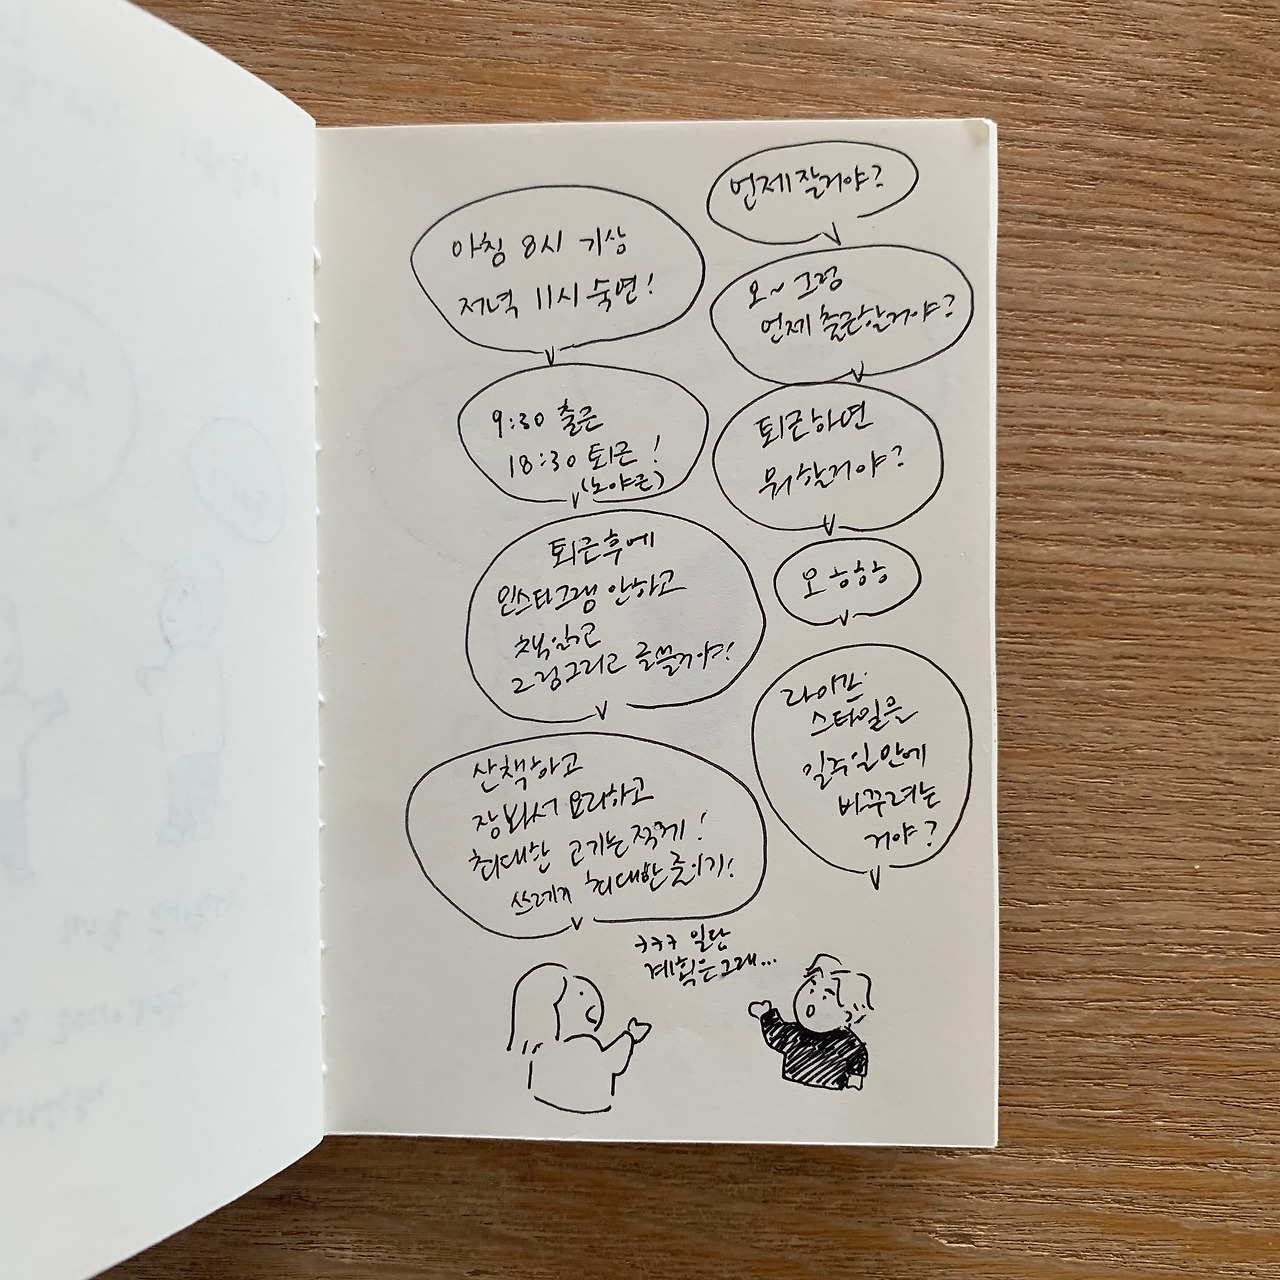 언제잘거야?
아침 8시 기상
저녁 11시 숙면!
오~ 그럼
언제 출근할거야?
9:30 출근
18:30 퇴근!
(노야근)
퇴근하면
뭐할거야?
퇴근후에
인스타그램 안하고
책읽고
그림그리고 글쓸거야!
오 ㅎㅎㅎ
산책하고
장봐서 요리하고
최대한 고기는 적게!
쓰레기 최대한 줄이기!
라이프
스타일을
일주일안에
바꾸려는
거야?
ㅋㅋㅋ 일단
계획은그래...